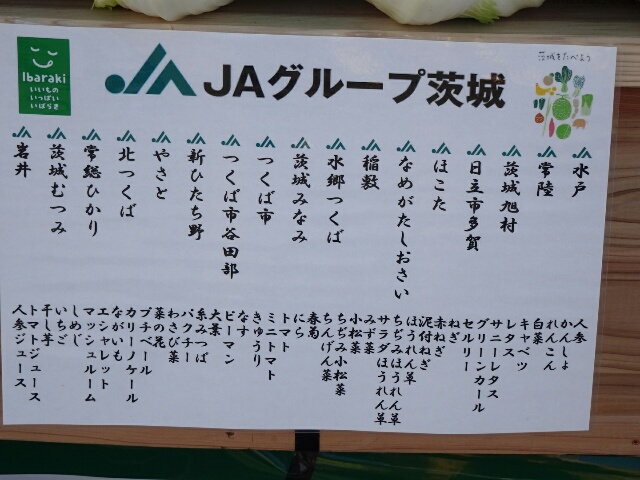 Ibaraki
いいもの
いっぱい
いばらき
JAグループ茨城
茨城をたべよう
水戸
常陸
茨城旭村
日立市多賀
ほこた
なめがたしおさい
稲敷
水郷つくば
茨城みなみ
つくば市
つくば市谷田部
新ひたち野
やさと
北つくば
常総ひかり
茨城むつみ
岩井
人参
かんしょ
れんこん
白菜
キャベツ
レタス
サニーレタス
グリーンカール
セルリー
ねぎ
赤ねぎ
泥付ねぎ
ほうれん草
ちぢみほうれん草
サラダほうれん草
みず菜
小松菜
ちぢみ小松菜
ちんげん菜
春菊
にら
トマト
ミニトマト
きゅうり
なす
ピーマン
大葉
糸みつば
パクチー
わさび菜
菜の花
プチベール
カリーノケール
ながいも
エシャレット
マッシュルーム
しめじ
いちご
干し芋
トマトジュース
人参ジュース